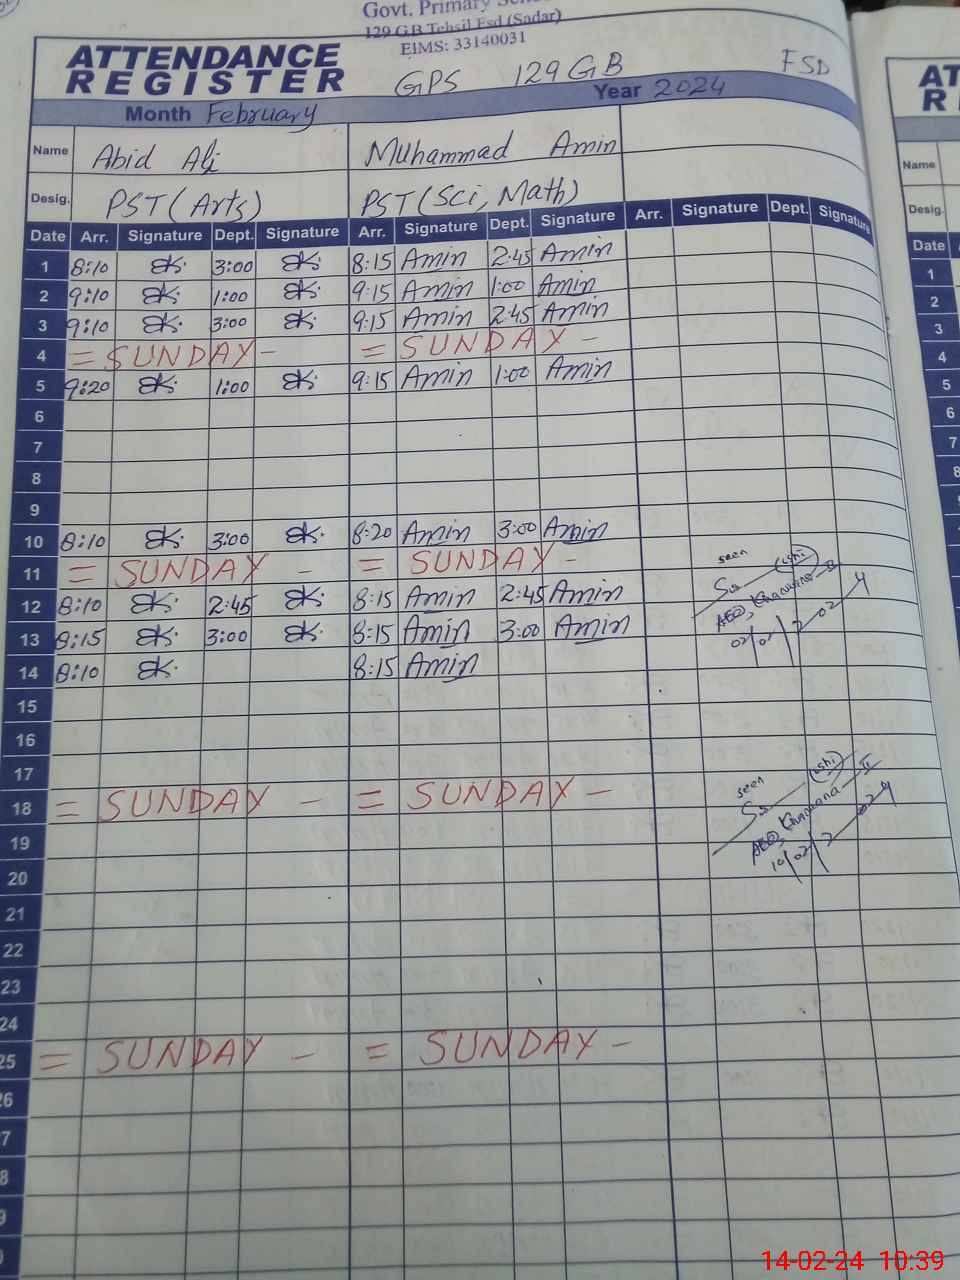 Govt. Primary
129 G.B Tehsil Fsd (Sadar)
EIMS: 33140031
ATTENDANCE
REGISTER
GPS 129 GB FSD
Month February Year 2024
Name Abid Ali Muhammad Amin
Desig. PST (Arts) PST (Sci, Math)
Date Arr. Signature Dept. Signature Arr. Signature Dept. Signature Arr. Signature Dept. Signature
1 8:10 3:00 8:15 Amin 2:45 Amin
2 9:10 1:00 9:15 Amin 1:00 Amin
3 9:10 3:00 9:15 Amin 2:45 Amin
4 = SUNDAY - = SUNDAY -
5 9:20 1:00 9:15 Amin 1:00 Amin
6
7
8
9
10 8:10 3:00 8:20 Amin 3:00 Amin
11 = SUNDAY - = SUNDAY -
12 8:10 2:45 8:15 Amin 2:45 Amin
13 8:15 3:00 8:15 Amin 3:00 Amin
14 8:10 8:15 Amin
15
16
17
18 = SUNDAY - = SUNDAY -
19
20
21
22
23
24
25 = SUNDAY - = SUNDAY -
26
7
8
9
seen
AEO, Khanuana II
02/02/2024
seen
AEO, Khanuana II
10/02/2024
AT
R
Name
Desig.
Date
1
2
3
4
5
6
7
8
14-02-24 10:39